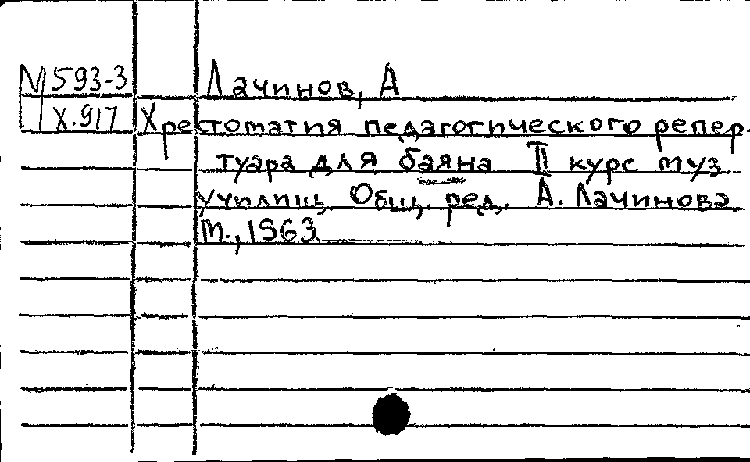 N 593-3 Лачинов, А
X.917 Хрестоматия педагогического репер-
туара для баяна II курс муз
училищ. Общ. ред. А. Лачинова
М., 1963